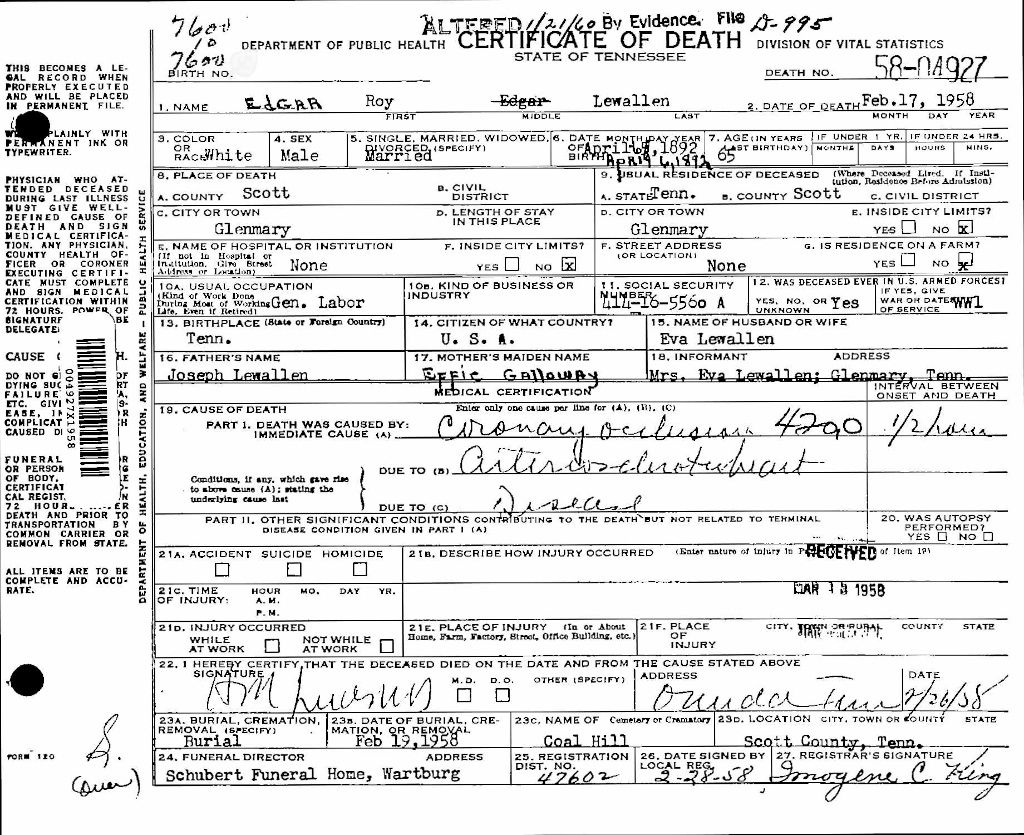 7600
10
7600
ALTERED 1/21/60 By Evidence. File D-995
DEPARTMENT OF PUBLIC HEALTH CERTIFICATE OF DEATH DIVISION OF VITAL STATISTICS
STATE OF TENNESSEE
BIRTH NO. DEATH NO. 58-04927
THIS BECOMES A LEGAL RECORD WHEN
PROPERLY EXECUTED
AND WILL BE PLACED
IN PERMANENT FILE.
PLAINLY WITH
PERMANENT INK OR
TYPEWRITER.
PHYSICIAN WHO AT-
TENDED DECEASED
DURING LAST ILLNESS
MUST GIVE WELL-
DEFINED CAUSE OF
DEATH AND SIGN
MEDICAL CERTIFICA-
TION. ANY PHYSICIAN,
COUNTY HEALTH OF-
FICER OR CORONER
EXECUTING CERTIFI-
CATE MUST COMPLETE
AND SIGN MEDICAL
CERTIFICATION WITHIN
72 HOURS. POWER OF
SIGNATURE BE
DELEGATE
CAUSE H.
DO NOT G OF
DYING SUC RT
FAILURE A,
ETC. GIVE S-
EASE, IN R
COMPLICAT H
CAUSED D
004927X1958
FUNERAL R
OR PERSON G
OF BODY,
CERTIFICAT O-
CAL REGIST. N
72 HOUR ER
DEATH AND PRIOR TO
TRANSPORTATION BY
COMMON CARRIER OR
REMOVAL FROM STATE.
ALL ITEMS ARE TO BE
COMPLETE AND ACCU-
RATE.
DEPARTMENT OF HEALTH, EDUCATION, AND WELFARE – PUBLIC HEALTH SERVICE
FORM 120
(over)
1. NAME EDGAR Roy Edgar Lewallen 2. DATE OF DEATH Feb. 17, 1958
FIRST MIDDLE LAST MONTH DAY YEAR
3. COLOR OR RACE White
4. SEX Male
5. SINGLE, MARRIED, WIDOWED, DIVORCED (SPECIFY) Married
6. DATE OF BIRTH MONTH DAY YEAR April 1892
April 6, 1892
7. AGE (IN YEARS LAST BIRTHDAY) 65
IF UNDER 1 YR. MONTHS DAYS
IF UNDER 24 HRS. HOURS MINS.
8. PLACE OF DEATH
A. COUNTY Scott B. CIVIL DISTRICT
9. USUAL RESIDENCE OF DECEASED (Where Deceased Lived. If Institution, Residence Before Admission)
A. STATE Tenn. B. COUNTY Scott C. CIVIL DISTRICT
C. CITY OR TOWN Glenmary D. LENGTH OF STAY IN THIS PLACE
D. CITY OR TOWN Glenmary E. INSIDE CITY LIMITS? YES NO X
E. NAME OF HOSPITAL OR INSTITUTION (If not in Hospital or Institution, Give Street Address or Location) None F. INSIDE CITY LIMITS? YES NO X
F. STREET ADDRESS (OR LOCATION) None G. IS RESIDENCE ON A FARM? YES NO X
10A. USUAL OCCUPATION (Kind of Work Done During Most of Working Life, Even if Retired) Gen. Labor
10B. KIND OF BUSINESS OR INDUSTRY
11. SOCIAL SECURITY NUMBER 414-16-5560 A
12. WAS DECEASED EVER IN U.S. ARMED FORCES? YES, NO, OR UNKNOWN Yes IF YES, GIVE WAR OR DATES OF SERVICE WW1
13. BIRTHPLACE (State or Foreign Country) Tenn.
14. CITIZEN OF WHAT COUNTRY? U. S. A.
15. NAME OF HUSBAND OR WIFE Eva Lewallen
16. FATHER'S NAME Joseph Lewallen
17. MOTHER'S MAIDEN NAME Effie Galloway
18. INFORMANT ADDRESS Mrs. Eva Lewallen; Glenmary, Tenn.
MEDICAL CERTIFICATION
INTERVAL BETWEEN ONSET AND DEATH
19. CAUSE OF DEATH Enter only one cause per line for (A), (B), (C)
PART I. DEATH WAS CAUSED BY: IMMEDIATE CAUSE (A) Coronary occlusion 4200 1/2 hour
DUE TO (B) Arteriosclerotic heart
Conditions, if any, which gave rise to above cause (A); stating the underlying cause last
DUE TO (C) Disease
PART II. OTHER SIGNIFICANT CONDITIONS CONTRIBUTING TO THE DEATH BUT NOT RELATED TO TERMINAL DISEASE CONDITION GIVEN IN PART I (A)
20. WAS AUTOPSY PERFORMED? YES NO
21A. ACCIDENT SUICIDE HOMICIDE
21B. DESCRIBE HOW INJURY OCCURRED (Enter nature of injury in P of Item 19)
RECEIVED
MAR 13 1958
21C. TIME OF INJURY: HOUR MO. DAY YR.
A. M.
P. M.
21D. INJURY OCCURRED WHILE AT WORK NOT WHILE AT WORK
21E. PLACE OF INJURY (In or About Home, Farm, Factory, Street, Office Building, etc.)
21F. PLACE OF INJURY CITY, TOWN OR RURAL COUNTY STATE
22. I HEREBY CERTIFY THAT THE DECEASED DIED ON THE DATE AND FROM THE CAUSE STATED ABOVE
SIGNATURE M.D. D.O. OTHER (SPECIFY)
ADDRESS Oneida Tenn DATE 2/26/58
23A. BURIAL, CREMATION, REMOVAL (SPECIFY) Burial
23B. DATE OF BURIAL, CREMATION, OR REMOVAL Feb 19, 1958
23C. NAME OF Cemetery or Crematory Coal Hill
23D. LOCATION CITY, TOWN OR COUNTY STATE Scott County, Tenn.
24. FUNERAL DIRECTOR ADDRESS Schubert Funeral Home, Wartburg
25. REGISTRATION DIST. NO. 47602
26. DATE SIGNED BY LOCAL REG. 2-28-58
27. REGISTRAR'S SIGNATURE Imogene C. King